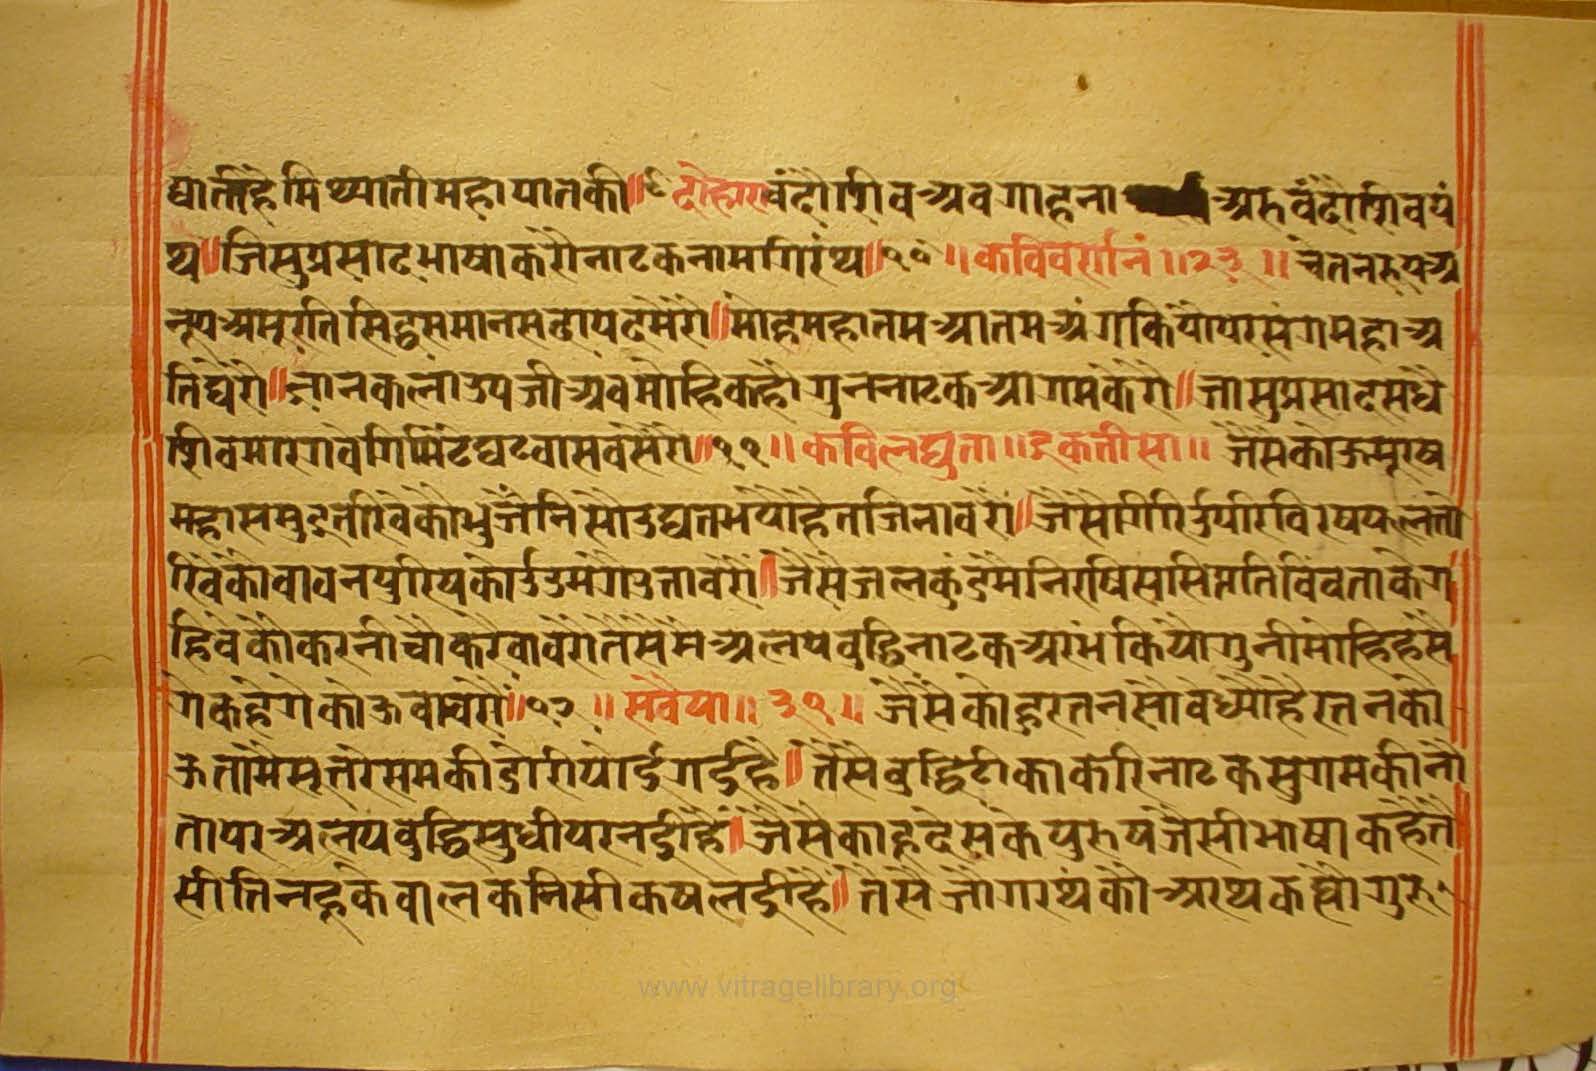 घाती है मिथ्याती महापातकी॥९ दोहारा वंदौ शिव अवगाहना अरु वंदौ शिवपं
थ॥जिसु प्रसाद भाषा करौ नाटक नाम गिरंथ॥१०॥कवि वर्णनं॥२३॥चेतनरूप अ
नूप अमूरति सिद्ध समान सदा पद मेरो॥मोह महातम आतम अंग कियौ परसंग महा अ
ति घेरो॥ज्ञानकला उपजी अब मोहि कहौं गुन नाटक आगम केरो॥जासु प्रसाद सधै
शिवमारग वेगि मिटै घटवास वसेरो॥११॥कवि लघुता॥इकतीसा॥ जैसै कोऊ मूरख
महासमुद्र तरिवेकौ भुजनिसौ उद्यत भयौ है तजि नावरौ॥जैसै गिरि उपरि विरषफल तो
रिवेकौ वावन पुरिष कोई उमगै उतावरौ॥जैसै जलकुंडमै निरषि ससि प्रतिविंव ताके ग
हिवेकौ कर नीचौ करै वावरौ तैसैमै अलपवुद्धि नाटक अरंभ कियौ गुनी मोहि हसै
गे कहेंगे कोऊ वावरौ॥१२॥सवैया॥३१॥ जैसै काहु रतनसौ वेध्यौ है रतन कौ
ऊ तामै सूत रेसमकी डोरी पोई गई है॥तैसै वुद्धि टीका करि नाटक सुगम कीनौ
तापर अलपवुद्धि सुधी परनई है॥जैसै काहू देसके पुरुष जैसी भाषा कहै तै
सी तिनहूके वालकनि सीकष लई है॥तैसै जौ गरंथकौ अरथ कह्यौ गुरु
www.vitragelibrary.org